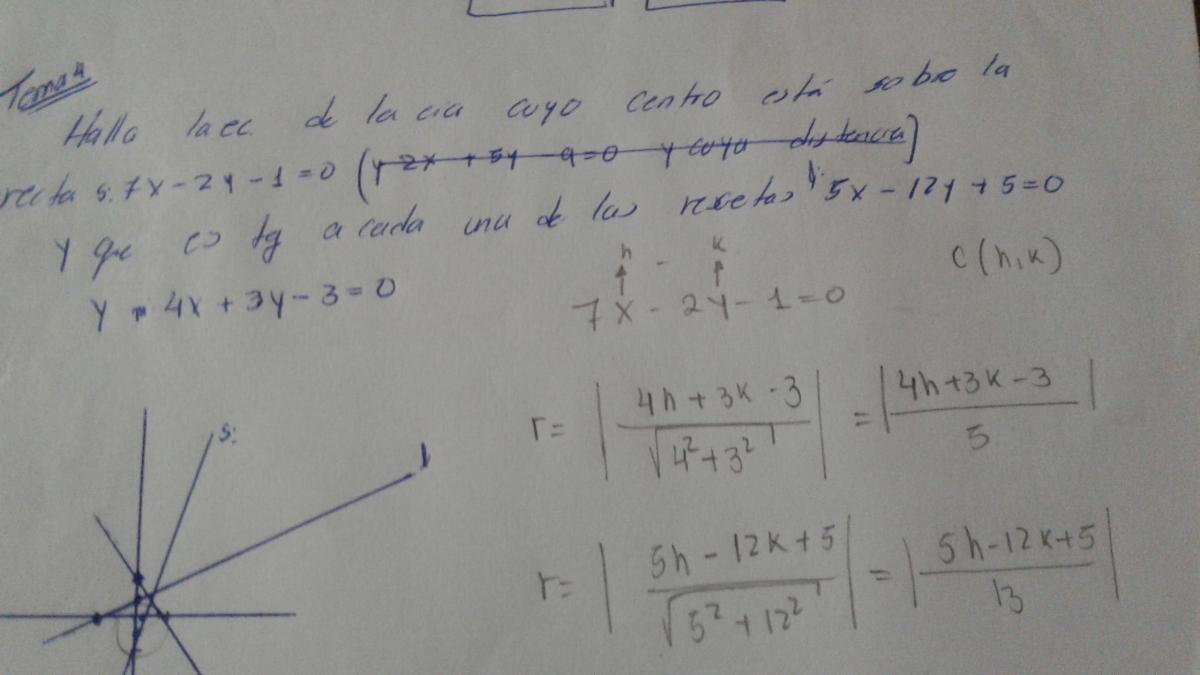 Tema 4
Hallo la ec. de la cia cuyo centro está sobre la
recta s: 7x - 2y - 1 = 0 (y 2x + 5y - 9 = 0 y cuya distancia)
y que es tg a cada una de las rectas l 5x - 12y + 5 = 0
y 4x + 3y - 3 = 0
h - k
C(h,k)
7x - 2y - 1 = 0
r = | 4h + 3k - 3 / √4² + 3² | = | 4h + 3k - 3 / 5 |
s:
l
r = | 5h - 12k + 5 / √5² + 12² | = | 5h - 12k + 5 / 13 |